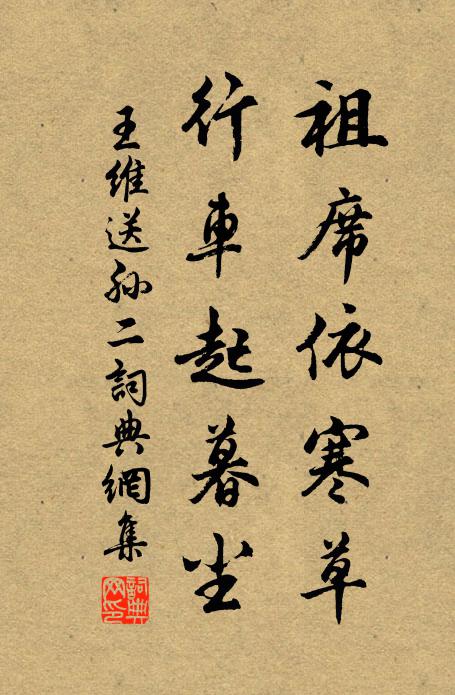 祖席依寒草
行車起暮尘
王維送孙二詞典網集
詞典
网印